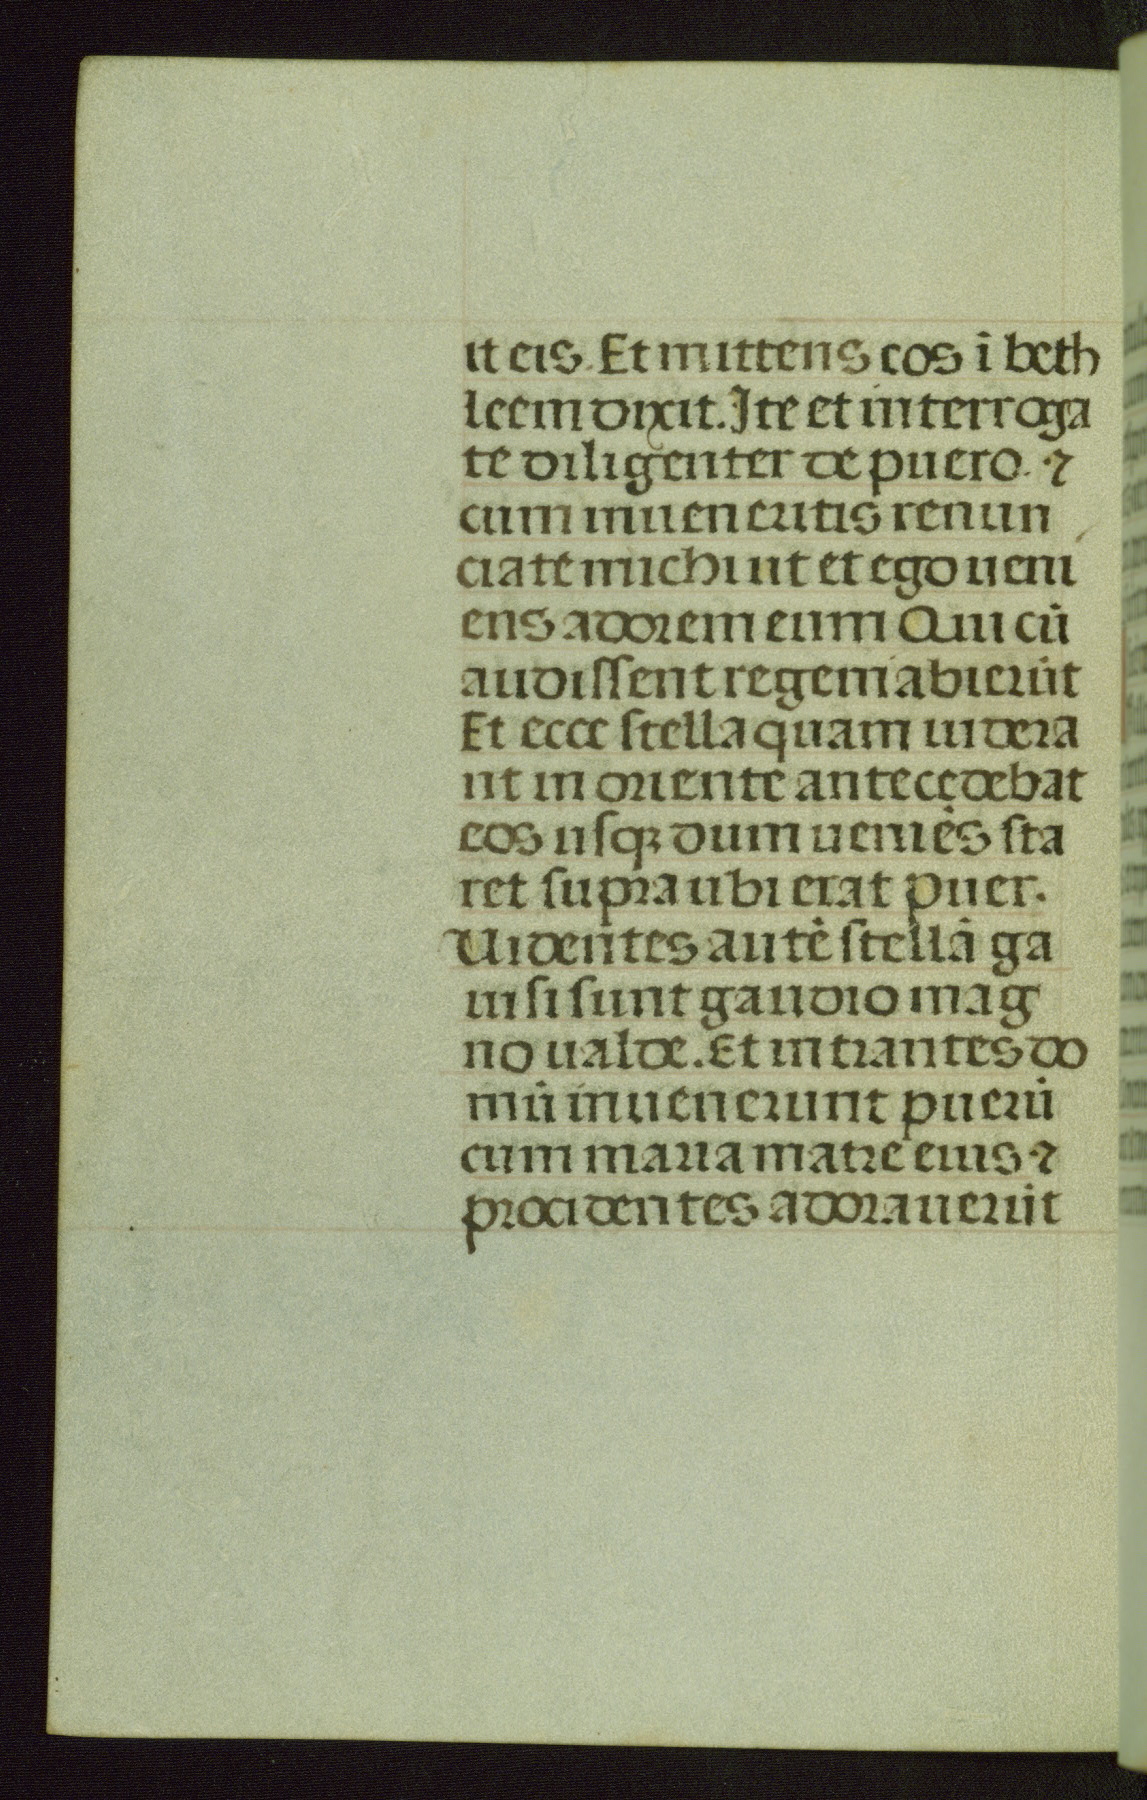 it eis. Et mittens eos ī beth
leem dixit. Ite et interroga
te diligenter de puero. ⁊
cum inueneritis renun
ciate michi ut et ego ueni
ens adorem eum Qui cū
audissent regem abierūt
Et ecce stella quam uidera
nt in oriente antecedebat
eos usqꝫ dum ueniēs sta
ret supra ubi erat puer.
Uidentes autē stellā ga
uisi sunt gaudio mag
no ualde. Et intrantes do
mū inuenerunt puerū
cum maria matre eius ⁊
procidentes adorauerūt